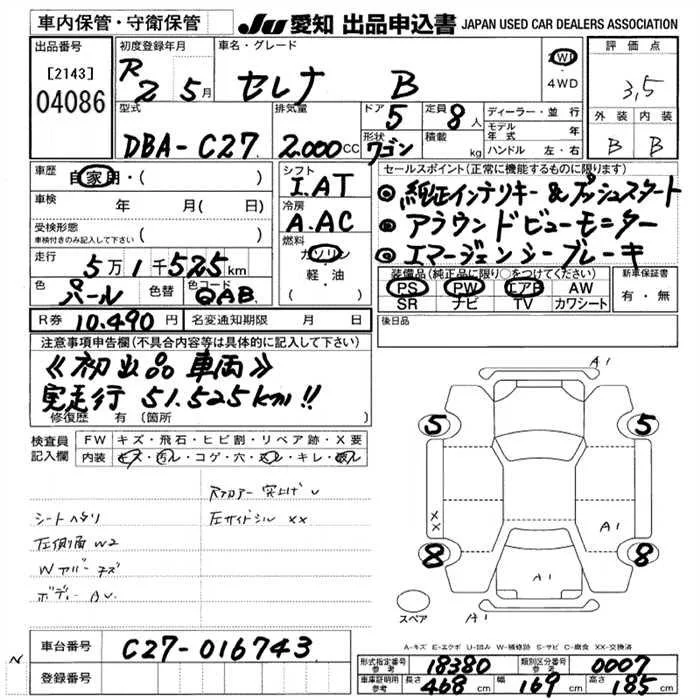 車内保管・守衛保管
JU 愛知 出品申込書 JAPAN USED CAR DEALERS ASSOCIATION
出品番号
[2143]
04086
初度登録年月
R 2 5月
車名・グレード
セレナ B
2WD
・4WD
評価点
3,5
外装 内装
B B
型式
DBA-C27
排気量
2.000CC
ドア
5
形状
ワゴン
定員
8人
積載
kg
ディーラー・並行
モデル年式 年
ハンドル 左・右
車歴
自家用・( )
車検
年 月( 日)
受検形態
車検付きのみ記入して下さい
( )
走行
5万1千525km
色
パール
色替
色コード
QAB
シフト
I.AT
冷房
A.AC
燃料
ガソリン
軽・油
( )
セールスポイント(正常に機能するものに限ります)
◎純正インテリキー&プッシュスタート
◎アラウンドビューモニター
◎エマージェンシーブレーキ
装備品(純正品に限り○をつけてください)
PS PW エアB AW
SR ナビ TV カワシート
新車保証書
有・無
R券 10.490円
名変通知期限 月 日
後日品
注意事項申告欄(不具合内容等は具体的に記入して下さい)
《初出品車両》
実走行 51.525km!!
修復歴 有(箇所
検査員記入欄
FW キズ・飛石・ヒビ割・リペア跡・X要
内装 キズ・汚ル・コゲ・穴・・キレ・
シートヘタリ
左側面 W2
ボディー
突上げ
左サイドシル XX
A1
5
5
XX
A1
8
8
A1
A1
スペア
A-キズ E-エクボ U-凹み W-補修跡 S-サビ C-腐食 XX-交換済
N
車台番号
C27-016743
登録番号
形式指定番号 参考
18380
類別区分番号 参考
0007
車庫証明用 参考
長さ 468cm
幅 169cm
高さ 185cm